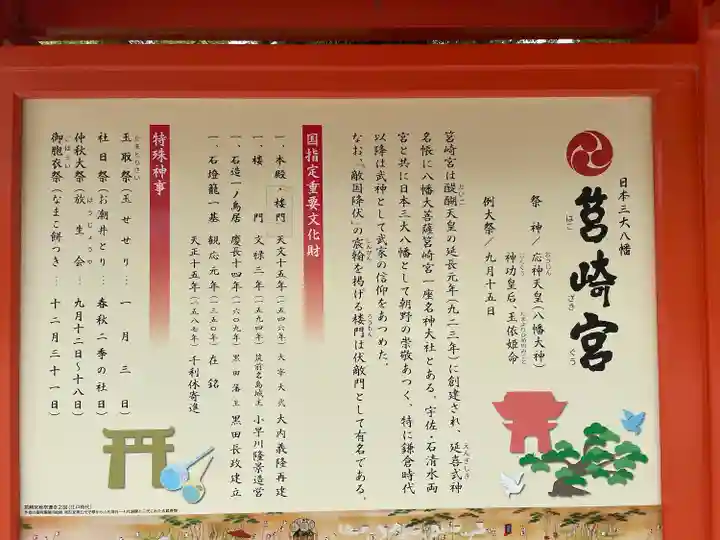 日本三大八幡
筥崎宮
はこ ざき ぐう
祭 神／応神天皇(八幡大神)
おうじん
神功皇后、玉依姫命
じんぐう たまよりひめのみこと
例大祭／九月十五日
筥崎宮は醍醐天皇の延長元年(九二三年)に創建され、延喜式神
だいご えんぎしき
名帳に八幡大菩薩筥崎宮一座名神大社とある。宇佐・石清水両
宮と共に日本三大八幡として朝野の崇敬あつく、特に鎌倉時代
以降は武神として武家の信仰をあつめた。
なお、「敵国降伏」の宸翰を掲げる楼門は伏敵門として有名である。
しんかん ろうもん
国指定重要文化財
一、本殿・楼門 天文十五年(一五四六年) 太宰大弐 大内義隆再建
一、楼 門 文禄三年(一五九四年) 筑前名島城主 小早川隆景造営
一、石造一ノ鳥居 慶長十四年(一六〇九年) 黒田藩主 黒田長政建立
一、石燈籠一基 観応元年(一三五〇年) 在 銘
天正十五年(一五八七年) 千利休寄進
特殊神事
玉取祭(玉せせり) 一月三日)
たまとりさい
社日祭(お潮井とり… 春秋二季の社日)
仲秋大祭(放生会… 九月十二日〜十八日)
ほうじょうや
御胞衣祭(なまこ餅つき… 十二月三十一日)
ごほうい